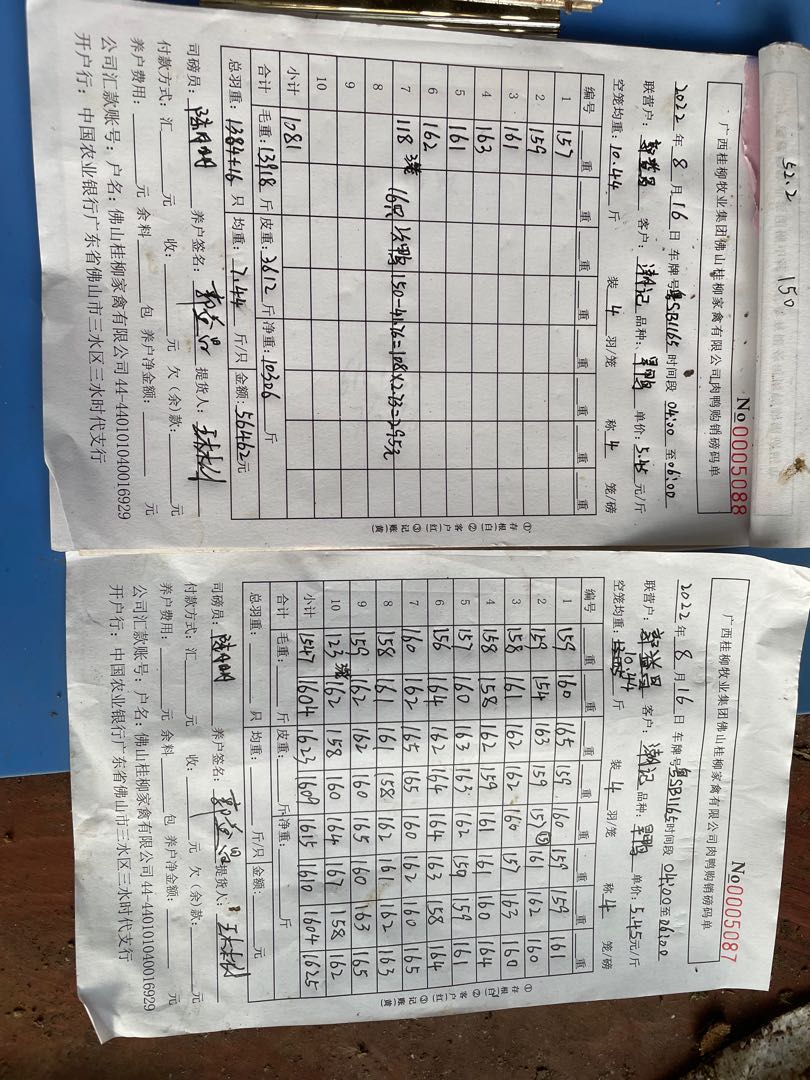 52.2
150
广西桂柳牧业集团佛山桂柳家禽有限公司肉鸭购销磅码单
No 0005088
2022 年 8 月 16 日 车牌号: 粤SB1165 时间段 04:00 至 06:00
联营户: 客户: 品种: 单价: 5.45 元/斤
空笼均重: 10.44 斤 装 4 羽/笼 称 4 笼/磅
编号 重 重 重 重 重 重 重 重
1 157
2 159
3 161
4 163
5 161
6 162
7 118 3笼 16只 150-41.76=108×2.73=295元
8
9
10
小计 1081
合计 毛重: 13918 斤 皮重: 3612 斤 净重: 10306 斤
总羽重: 1384+16 只 均重: 7.44 斤/只 金额: 56462元
司磅员: 养户签名: 提货人:
付款方式: 汇 元 收: 元 欠(余)款: 元
养户费用: 元 余料 包 养户净金额: 元
公司汇款账号: 户名: 佛山桂柳家禽有限公司 44-440101040016929
开户行: 中国农业银行广东省佛山市三水区三水时代支行
①存根(白) ②客户(红) ③记账(黄)
广西桂柳牧业集团佛山桂柳家禽有限公司肉鸭购销磅码单
No 0005087
2022 年 8 月 16 日 车牌号: 粤SB1165 时间段 04:00 至 06:00
联营户: 客户: 品种: 单价: 5.45元/斤
空笼均重: 10.44 斤 装 4 羽/笼 称 4 笼/磅
编号 重 重 重 重 重 重 重 重
1 159 160 165 159 160 159 159 161
2 159 154 163 159 157 161 162 160
3 158 161 162 162 160 157 163 160
4 158 158 162 159 161 161 160 164
5 157 160 163 163 162 159 159 161
6 156 164 162 164 164 163 158 164
7 160 162 165 165 160 162 160 165
8 158 161 161 158 162 161 162 163
9 159 162 162 160 165 160 163 165
10 123 3笼 162 158 160 164 167 158 162
小计 1547 1604 1623 1609 1615 1610 1604 1625
合计 毛重: 斤 皮重: 斤 净重: 斤
总羽重: 只 均重: 斤/只 金额: 元
司磅员: 养户签名: 提货人:
付款方式: 汇 元 收: 元 欠(余)款: 元
养户费用: 元 余料 包 养户净金额: 元
公司汇款账号: 户名: 佛山桂柳家禽有限公司 44-440101040016929
开户行: 中国农业银行广东省佛山市三水区三水时代支行
①存根(白) ②客户(红) ③记账(黄)